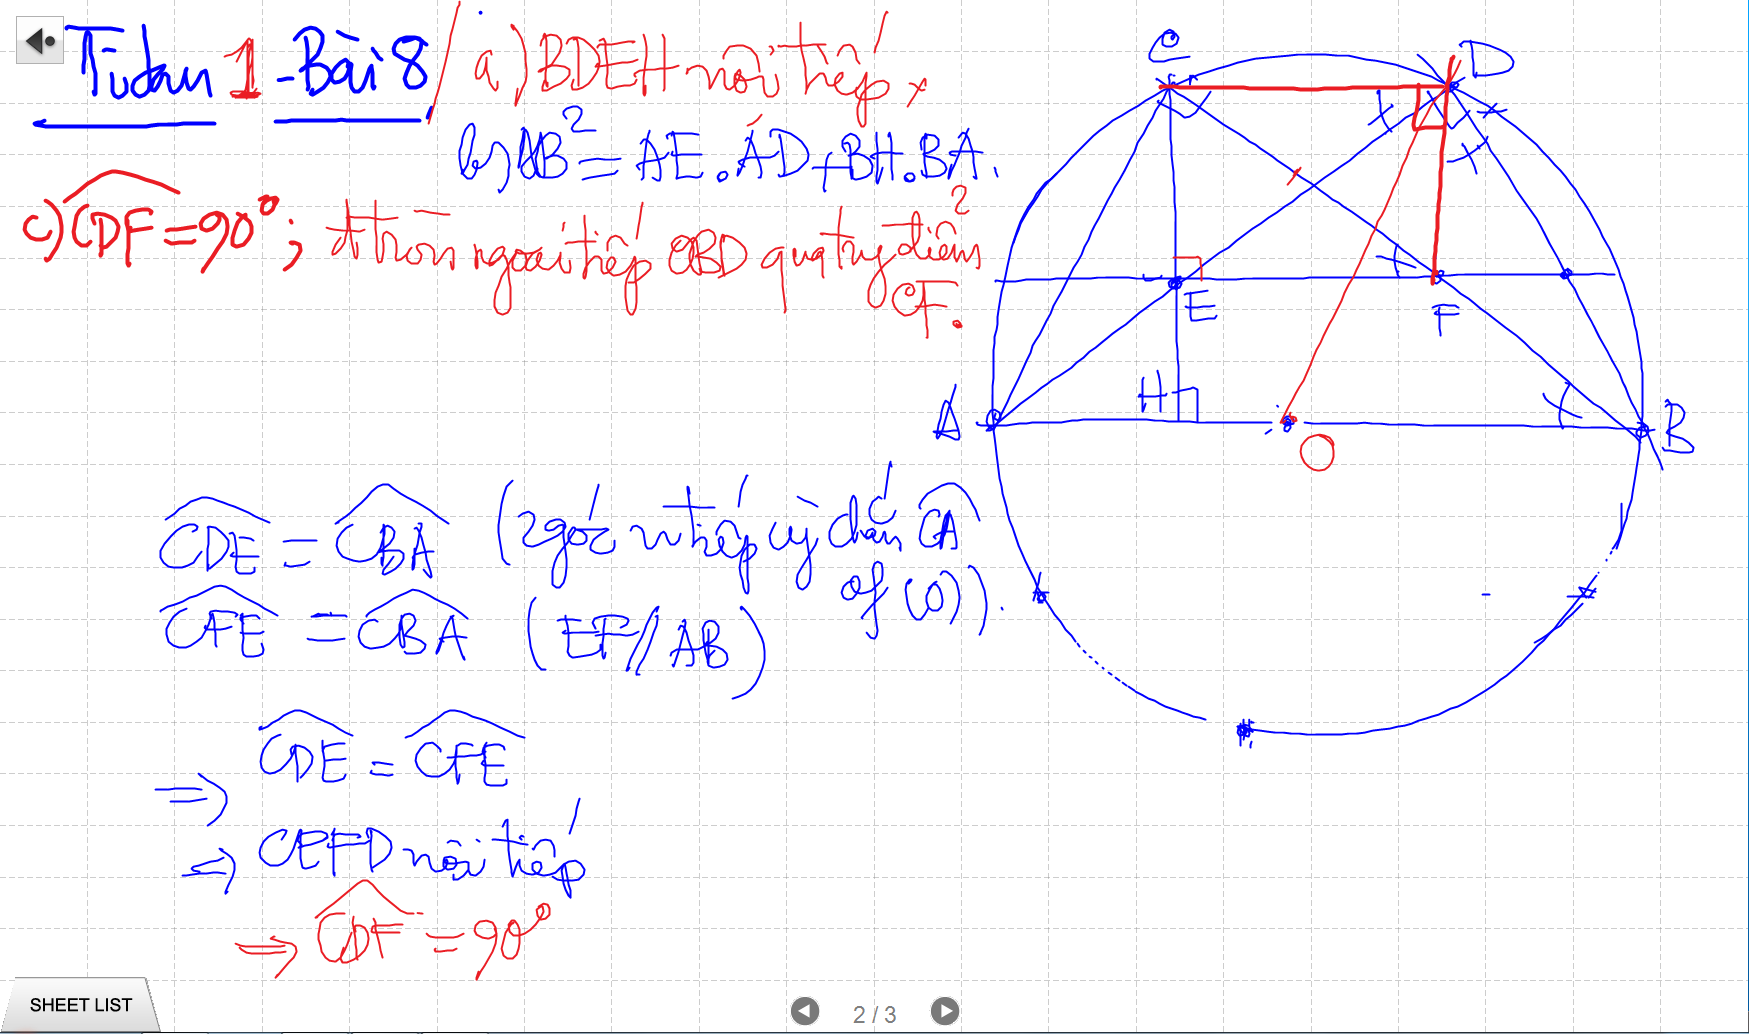 Tuần 1 - Bài 8 / a) BDEH nội tiếp
b) AB² = AE.AD + BH.BA.
c) CDF = 90°; đtròn ngoại tiếp OBD qua trung điểm
CF.
C
D
E
F
A
H
O
B
CDE = CBA (2 góc n tiếp cg chắn CA
of (O)).
CFE = CBA (EF // AB)
⇒ CDE = CFE
⇒ CEFD nội tiếp
⇒ CDF = 90°
SHEET LIST
2 / 3